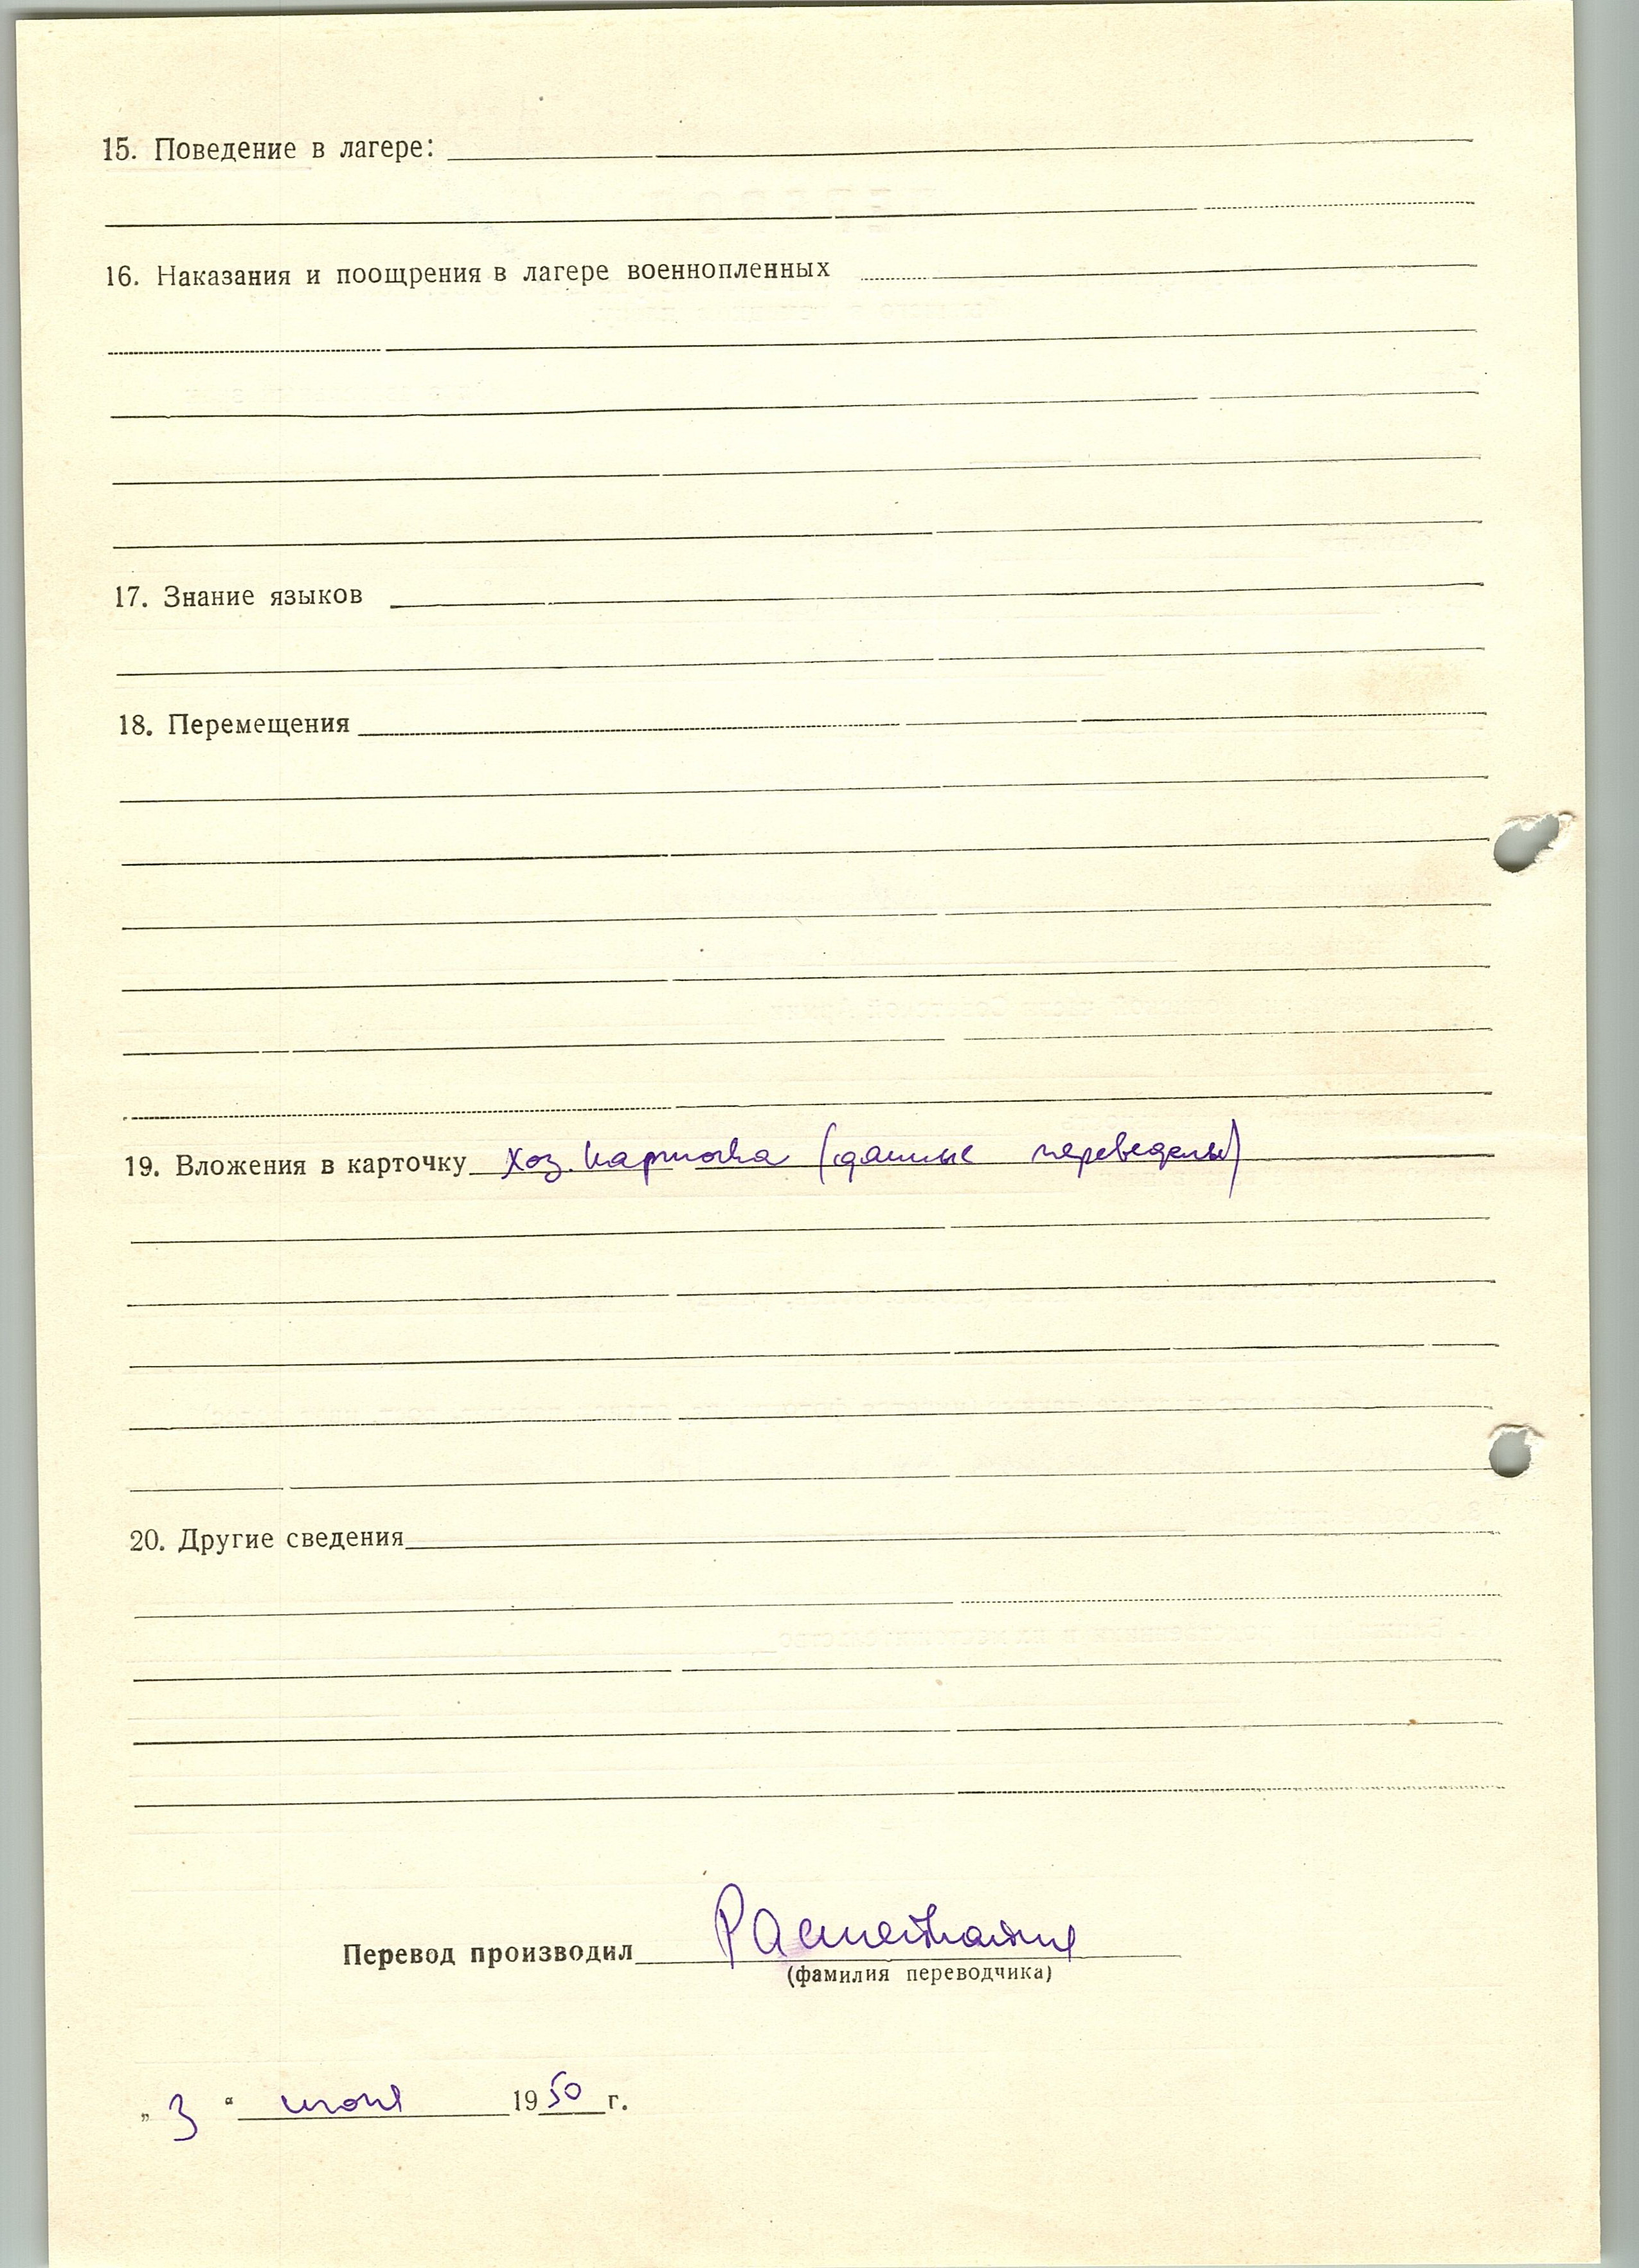 15. Поведение в лагере:
16. Наказания и поощрения в лагере военнопленных
17. Знание языков
18. Перемещения
19. Вложения в карточку хоз. карточка (данные переведены)
20. Другие сведения
Перевод производил
(фамилия переводчика)
„ 3 “ июня 1950 г.